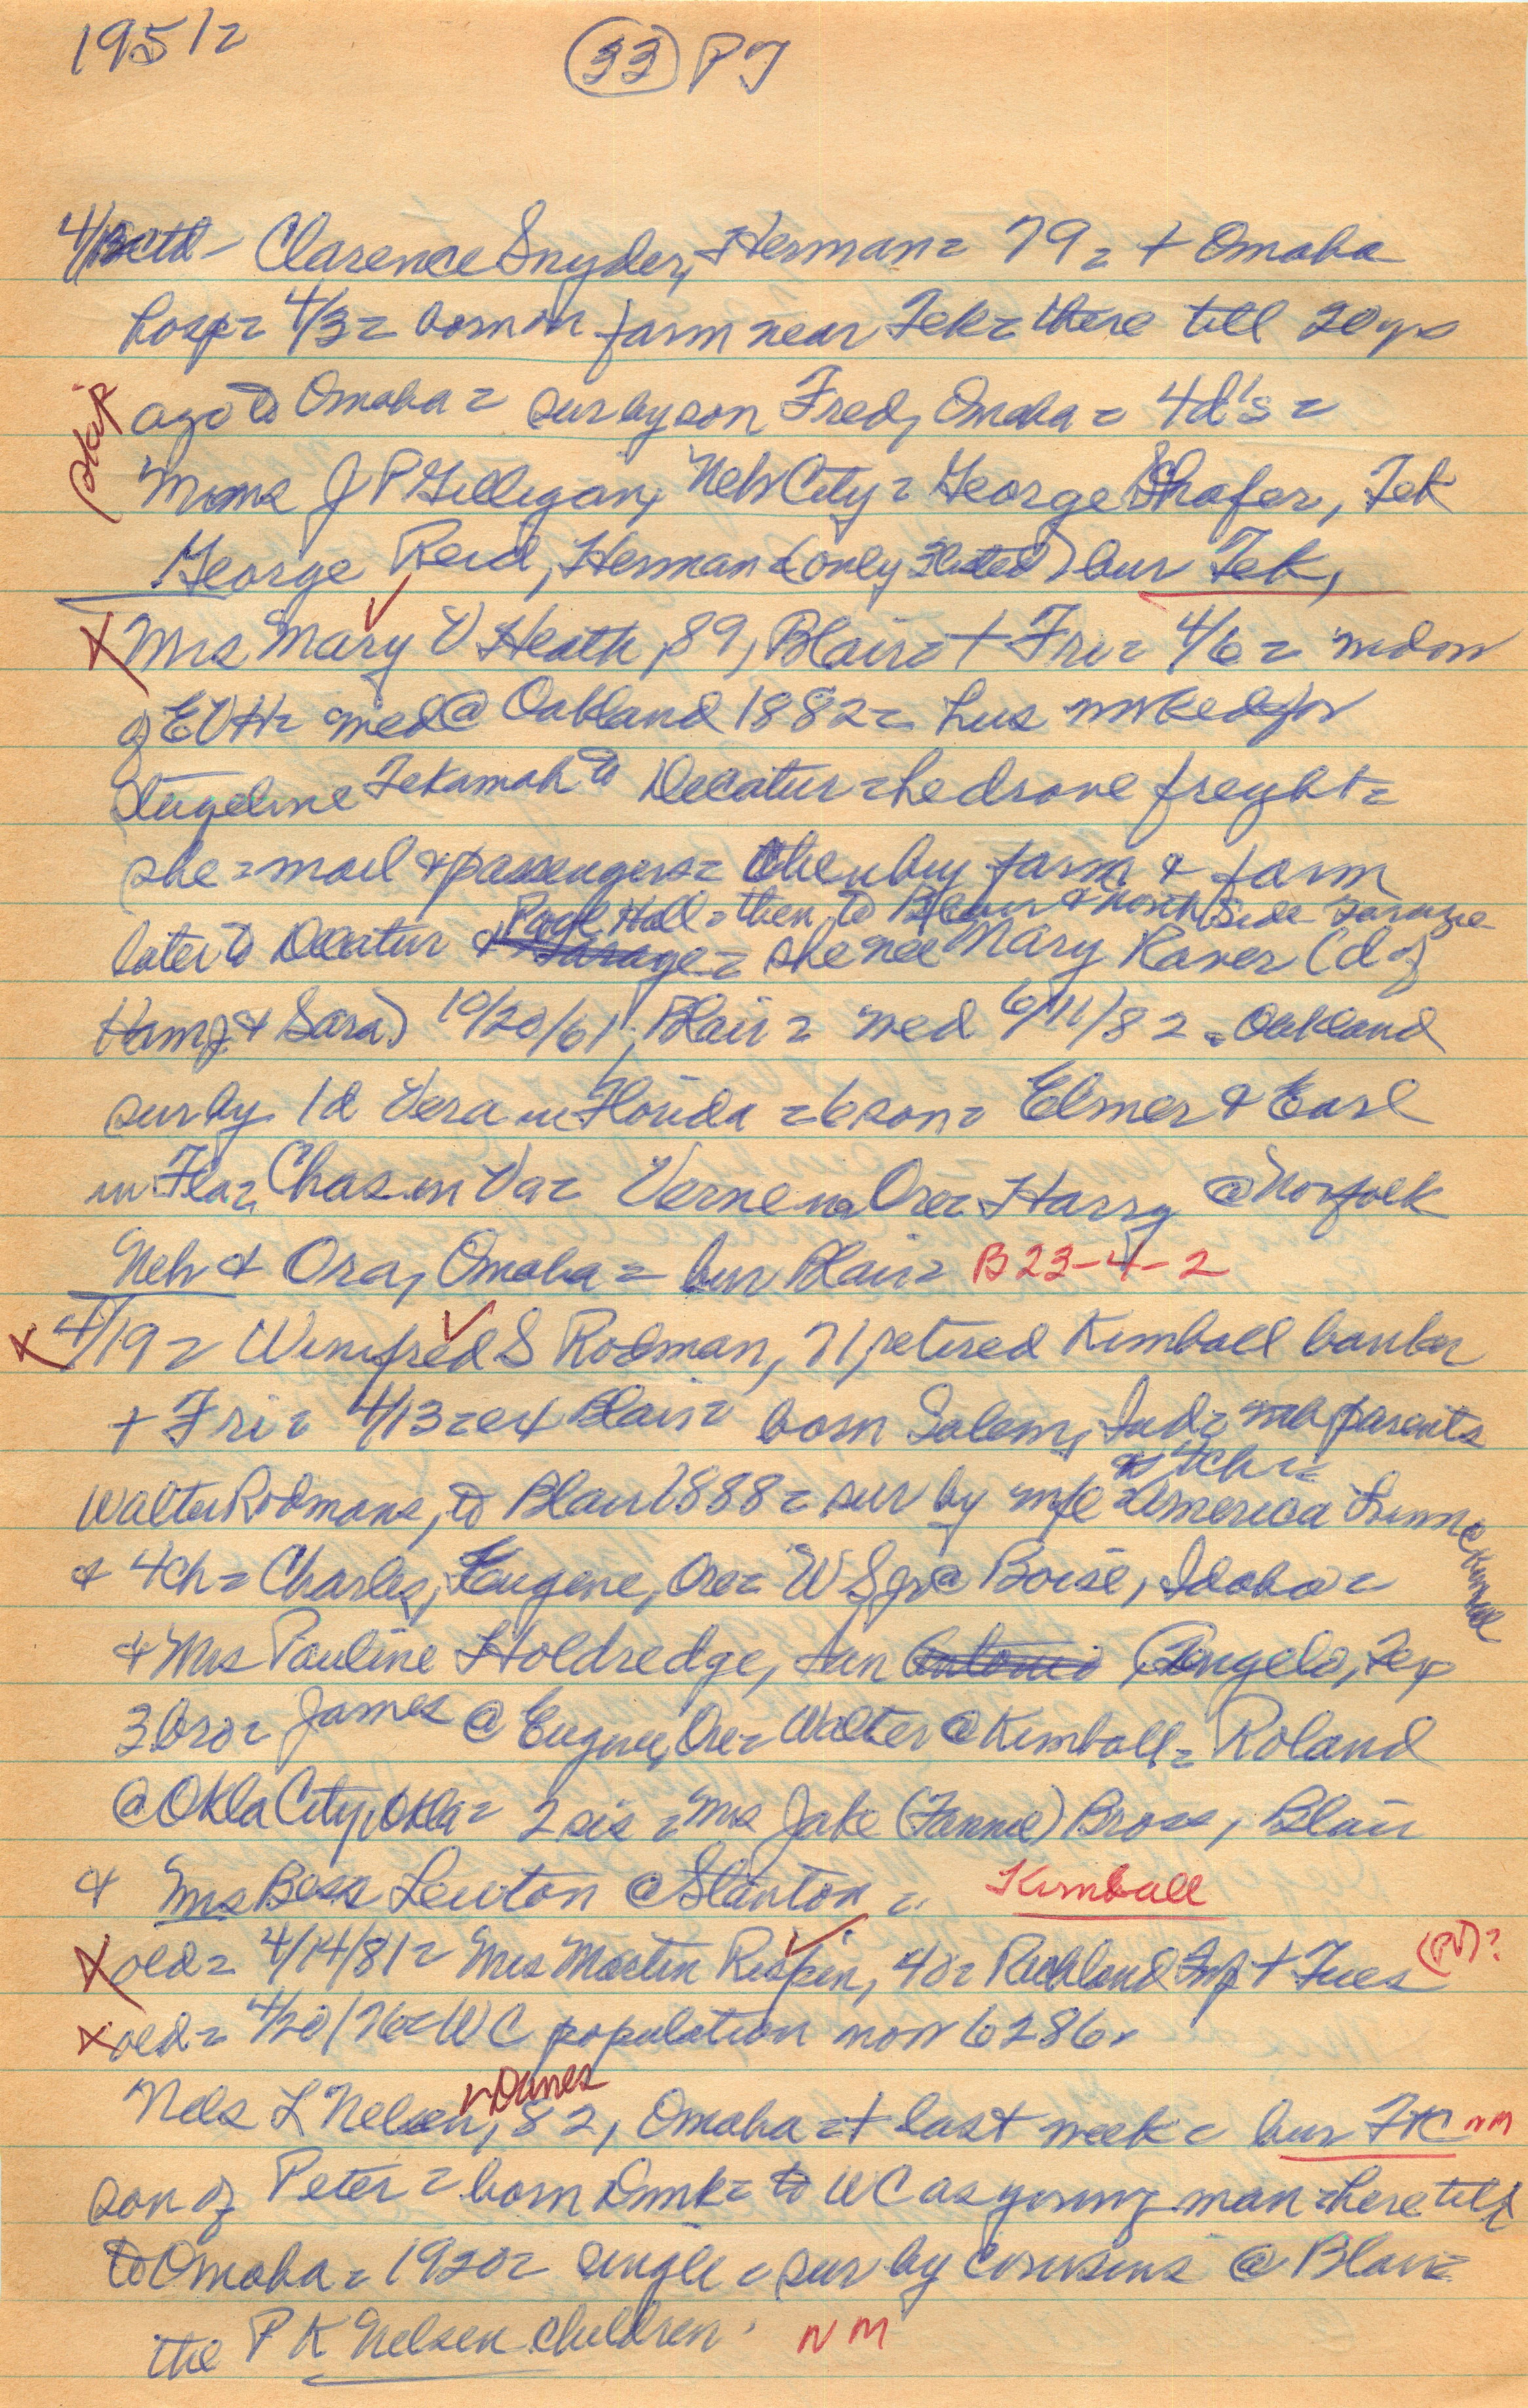 1951=
33 PT
4/12 ctd - Clarence Snyder, Herman = 79 = + Omaha
hosp = 4/3 = born on farm near Tek = there till 20 yrs
skip
ago to Omaha = sur by son Fred, Omaha = 4 d's =
Mmes J P Gilligan, Neb City = George Shafer, Tek
George Reid, Herman = (only 3 listed) bur Tek,
X Mrs Mary V Heath, 89, Blair = + Fri = 4/6 = widow
of EVH = med @ Oakland 1882 = hus worked for
stageline Tekamah to Decatur = he drove freight =
she = mail & passengers = then buy farm & farm
Pool Hall = then to Blair & North Side Garage
later to Decatur & Garage = she nee Mary Raver (d of
Hamp & Sara) 10/20/61, Blair = med 6/11/82 = Oakland
sur by 1 d Vera in Florida = 6 son = Elmer & Earl
in Fla = Chas in Va = Verne in Ore = Harry @ Norfolk
Neb & Ora, Omaha = bur Blair = B 23-4-2
X 4/19 = Winifred S Rodman, 71, retired Kimball banker
+ Fri = 4/13 = ex Blair = born Salem, Ind = parents
Walter Rodmans, to Blair 1888 = sur by wife = America
@ Kimball
& 4 ch = Charles, Eugene, Ore = W S Jr @ Boise, Idaho =
& Mrs Pauline Holdredge, San Antonio Angelo, Tex
3 bro = James @ Eugene, Ore = Walter @ Kimball = Roland
@ Okla City, Okla = 2 sis = Mrs Jake (Fannie) Bross, Blair
& Mrs Bess Lewton @ Stanton = Kimball
X old = 4/14/81 = Mrs Martin Rispin, 40 = Richland + Tues (PV)?
X old = 4/20/76 = WC population now 6286 =
Danes
Nels L Nelsen, 82, Omaha = + last week = bur FC NM
son of Peter = born Dmk = to WC as young man = here till
to Omaha = 1920 = single = sur by cousins @ Blair =
the P K Nelsen children. NM